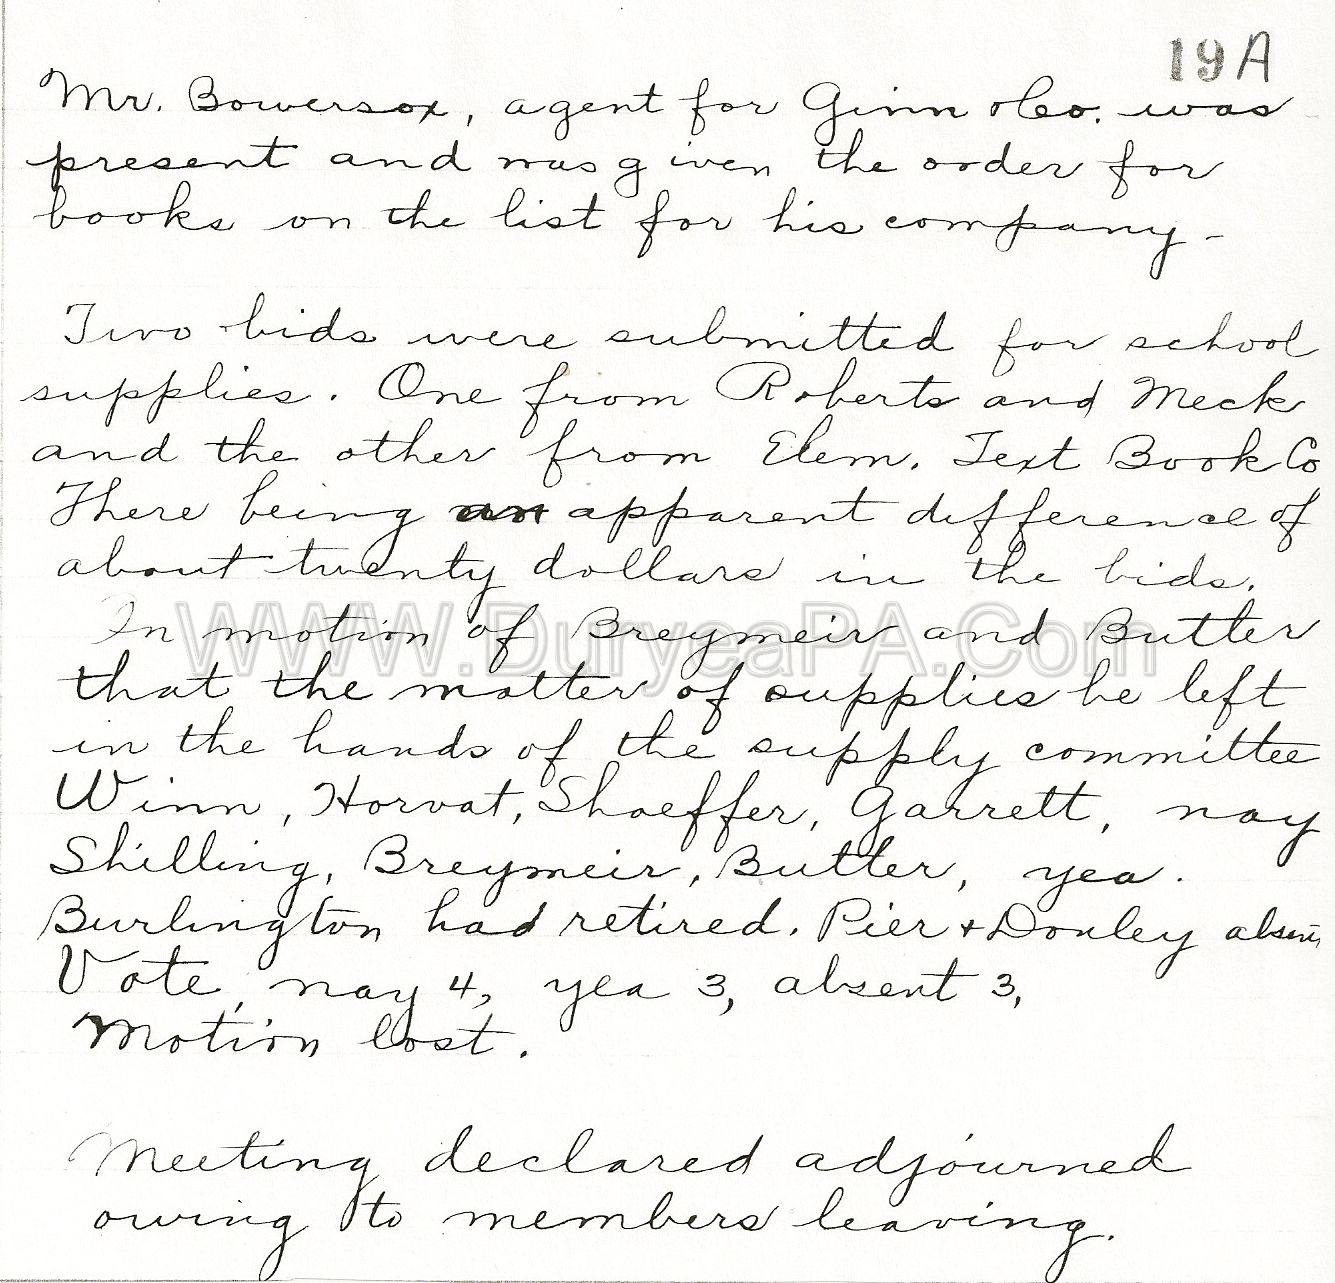 19A
Mr. Bowersox, agent for Ginn & Co. was
present and was given the order for
books on the list for his company -
Two bids were submitted for school
supplies. One from Roberts and Meck
and the other from Elem. Text Book Co
There being an apparent difference of
about twenty dollars in the bids.
WWW.DuryeaPA.Com
On motion of Breymeir and Butler
that the matter of supplies be left
in the hands of the supply committee
Winn, Horvat, Shaeffer, Garrett, nay
Shilling, Breymeir, Butler, yea.
Burlington had retired. Pier + Donley absent
Vote, nay 4, yea 3, absent 3,
Motion lost.
Meeting declared adjourned
owing to members leaving.